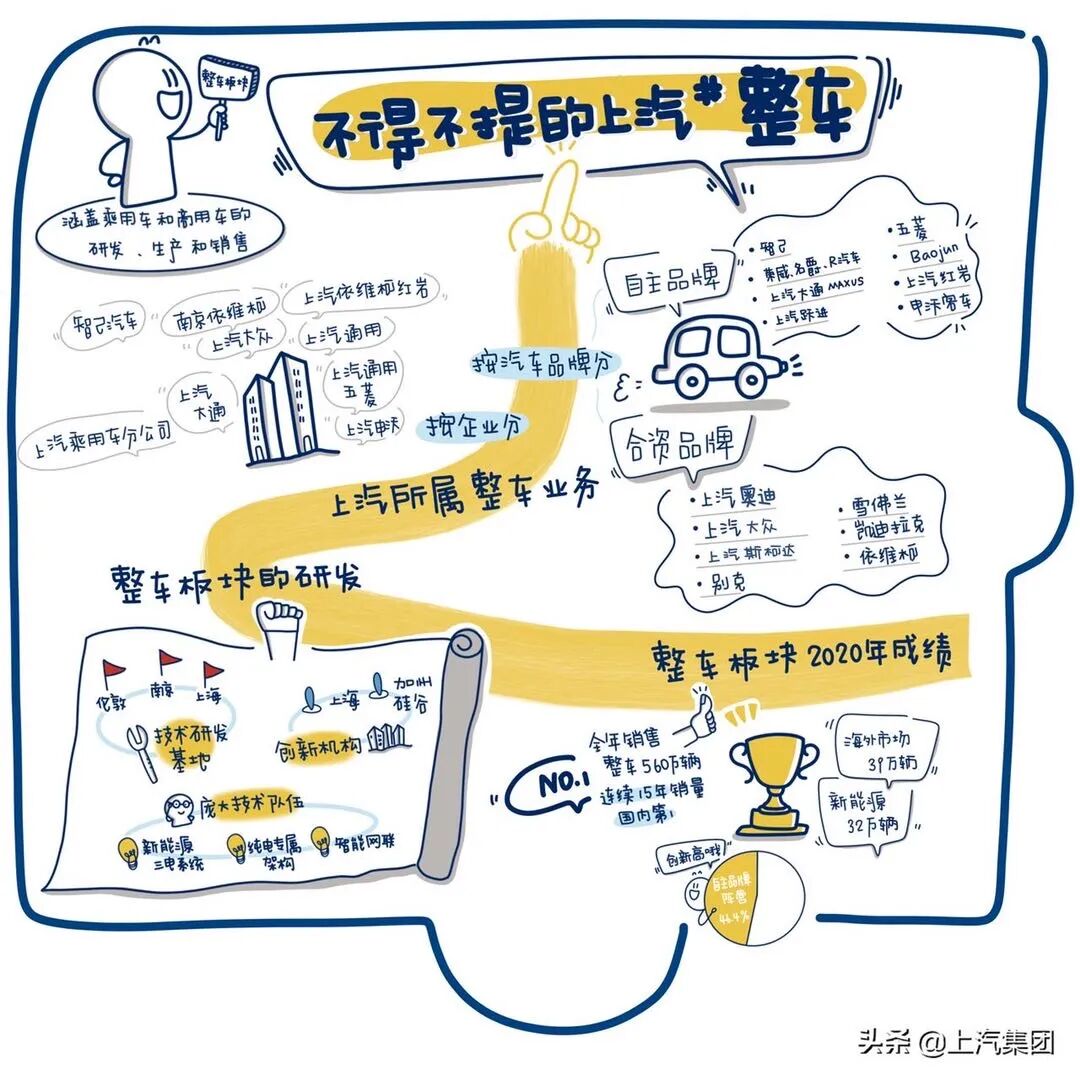 整车板块
不得不提的上汽#整车
涵盖乘用车和商用车的
研发、生产和销售
自主品牌
智己
荣威、名爵、R汽车
上汽大通MAXUS
上汽跃进
五菱
Baojun
上汽红岩
申沃客车
智己汽车
南京依维柯
上汽依维柯红岩
上汽大众
上汽通用
上汽
大通
上汽通用
五菱
上汽乘用车分公司
上汽申沃
按汽车品牌分
按企业分
合资品牌
上汽奥迪
上汽大众
上汽斯柯达
别克
雪佛兰
凯迪拉克
依维柯
上汽所属整车业务
整车板块的研发
伦敦
南京
上海
技术研发
基地
上海
加州
硅谷
创新机构
庞大技术队伍
新能源
三电系统
纯电专属
架构
智能网联
整车板块2020年成绩
NO.1
全年销售
整车560万辆
连续15年销量
国内第1
海外市场
39万辆
新能源
32万辆
创新高哦!
自主品牌
阵营
46.4%
头条 @上汽集团